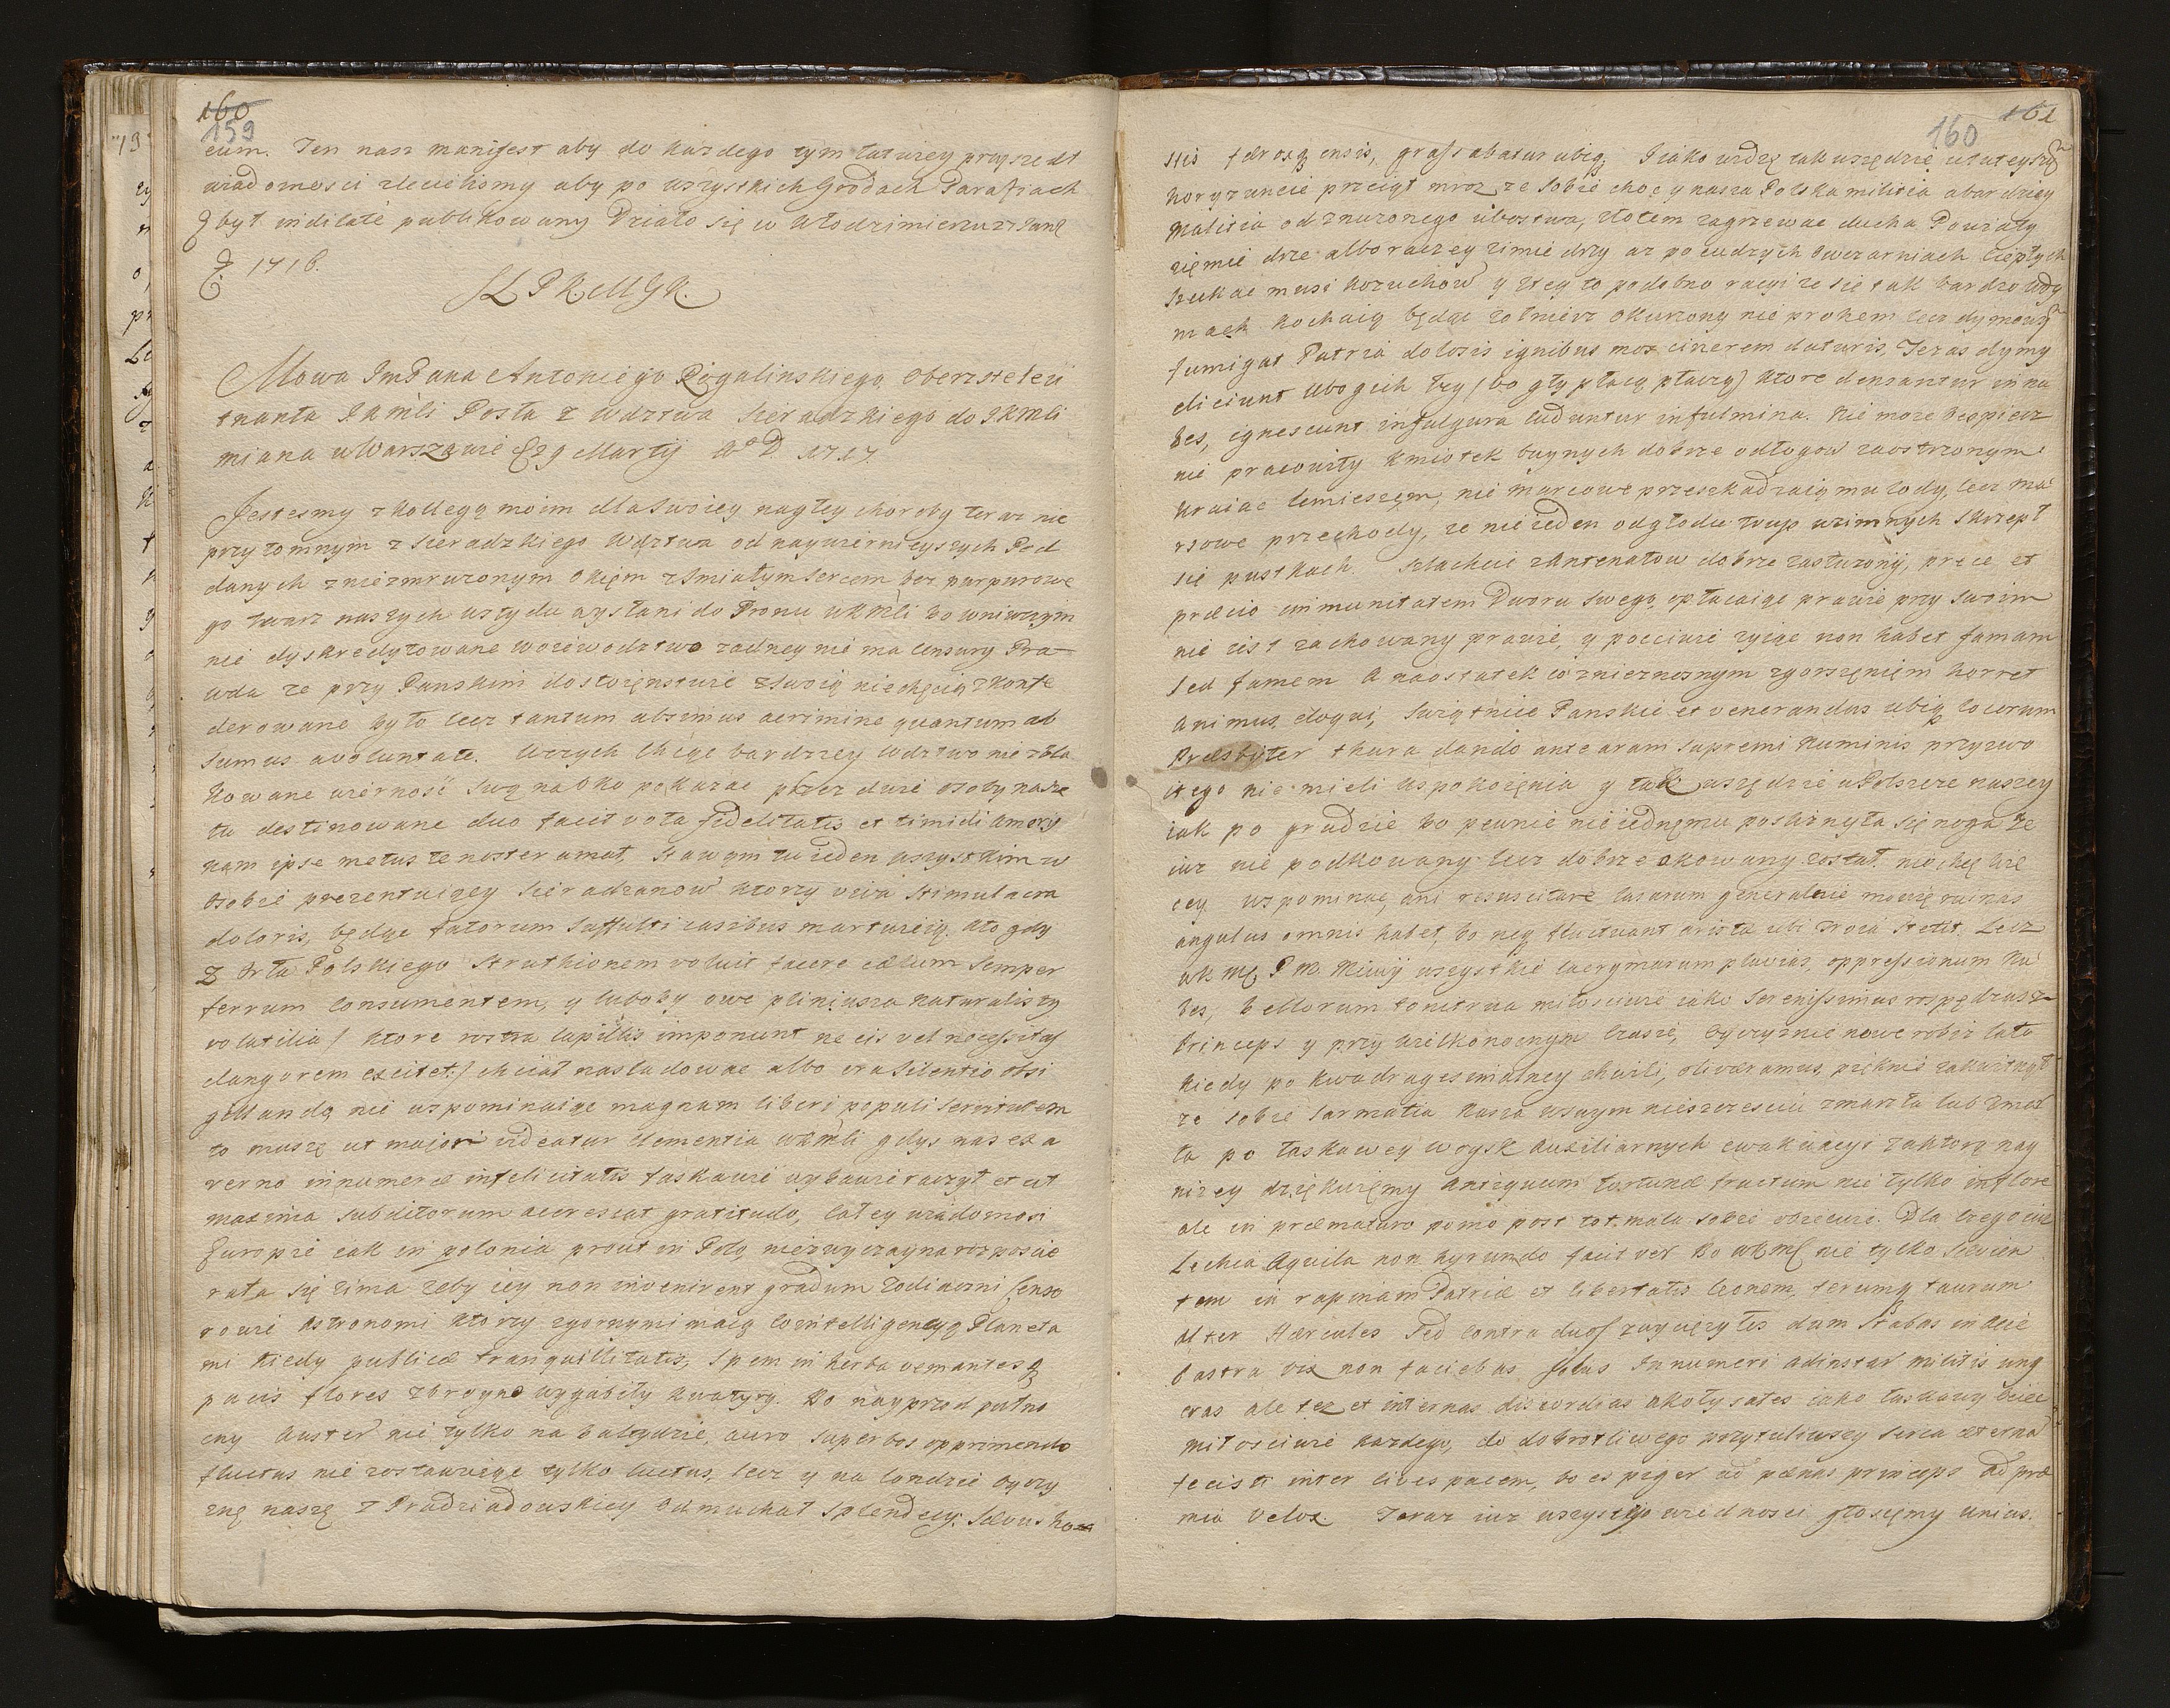 160
159
cium. Ten nasz manifest aby do kazdego tym łatwiey przyszedł
wiadomosci zleciliśmy aby po wszystkich Grodach Parafiach
był indilate publikowany Działo się w Włodzimierzu 21 Janu
1716.
SLPKMGK.
Mowa ImPana Antoniego Rogalinskiego Oberszteleu
tnanta JKMsci Posła z Wdztwa Sieradzkiego do JKMsci
miana w Warszawie 29 Martij Ao D 1717.
Jestesmy z kollegą moim dla swoiey nagłey choroby teraz nie
przytomnym z Sieradzkiego Wdztwa od naywiernieyszych Pod
danych z niezmruzonym okiem z smiałym sercem bez purpurowe
go twarz naszych wstydu wysłani do Tronu WKMsci bo w niwczym
nie dyskredytowane woiewodztwo zadney nie ma censury Pra
wda ze przy Panskim dostoięnstwie z swoią niechęcią zkonfe
derowane było lecz tantum absimus acrimine quantum ab
sumus avoluntate. Wczych chcąc bardziey Wdztwo niezbla
kowane wierność swą na oko pokazac przez dwie osoby nasze
tu destinowane duo facit vota fidelitatis et timidi amoris
nam ipse metus te noster amat, stawam tu ieden wszystkim w
osobie prezentuiący Sieradzanow ktorzy viva stimulacra
doloris, będąc fatorum suffulti casibus martwieią. kto gdy
z Orła Polskiego Struthionem voluit facere ędum semper
ferrum consumentem, y luboby owe pliniusza naturalisty
volatilia / ktore rostra lapillis imponunt ne eis vel necessitas
clangorem excitet:/ chciał nasladowac albo era silentio obsi
gillanda nie wspominaiąc magnam liberi populi servitutem
to muszę ut major videatur clementia WKMsci gdyś nas ex a
verno innumeræ infelicitatis łaskawie wybawic raczył et ut
maxima subditorum accrescat gratitudo, całey wiadomosi
Europie iak in polonia prout in Polo, niezwyczayna rozposcie
rała się zima zeby iey non invenirent gradum zodiaczni Censo
rowie astronomi ktorzy zgornymi maią co intelligencyą Planeta
mi kiedy publicæ tranquillitatis, spem in herba vernantesq
pacis flores zbroyne wygubiły kwatyry. Bo nayprzod putno
cny Auster nie tylko na bałtydzie, auro superbos opprimendo
fluctus nie zostawuiąc tylko luctus, lecz y na londzie oyczy
znę naszę z Pradziadowskiey odmuchał splendecy. Sævus ho
161
160
stis feroxq ensis, grassabatur ubiq. Jiako widzę tak wszędzie w tuteyszym
horyzoncie przeiął mroz ze sobie choc y nasza Polska militia a bardziey
malitia od znuzonego ubostwa, złotem zagrzewac ducha Powiaty
ziemie drze albo raczey zimie drzy az po cudzych owczarniach ciepłych
szukac musi kozuchow y ztey to podobno racyi ze sie tak bardzo w dy
mach kochaią będąc zołnierz okurzony nie prohem lecz dymowym
fumigat Patria dolosis ignibus mox cinerem daturis, Teras dymy
eliciunt ubogich łzy / bo gły płacą płaczą / ktore densantur in nu
bes, ignescunt in fulgura luduntur in fulmina. Nie moze bespiecz
nie pracowity kmiotek buynych dobrze odłogow zaostrzonym
kraiac lemieszem, nie marcowe przeszkadzaią mu lody, lecz ma
rsowe przechody, ze nie ieden od głodu trup w zimnych skrzepł
się pustkach. Szlachcic z Antenatow dobrze zasłuzony, prece et
precio immunitatem Dworu swego opłacaiąc prawie przy swoim
nie iest zachowany prawie, y poczciwie zyiąc non habet famam
sed famem a na ostatek co z nieznosnym zgorszeniem horret
animus eloqui, swiątnice Panskie et venerandus ubiq locorum
Præsbyter thura dando ante aram supremi Numinis przyzwo
itego nie mieli uspokoięnia y tak wszędzie w Polszcze naszey
iak po grudzie bo pewnie nie iednemu posliznęła się noga ze
iuz nie podkowany lecz dobrze okowany został. niechcę wię
cey wspominac, ani resuscitare casuum generalnie mowię ruinas
angulus omnis habet, bo neq fluctuant arista ubi Troia stetit. Lecz
WKMs P.N. Miwy wszystkie lacrymarum pluvias, oppressionum nu
bes, bellorum tonitrua miłosciwie iako Serenissimus rozpędzasz
Princeps y przy wielkonocnym czasie, oyczyznie nowe robisz lato
kiedy po kwadragesimalney chwili, olivæ ramus, pięknie zakwitnął
ze sobie Sarmatia nasza w samym nieszczesciu zmarzła lub zmok
ła po łaskawey woysk auxiliarnych ewakuacyi za ktorę nay
nizey dziękuięmy antiquum fortunæ fructum nie tylko in flore
ale in præmaturo pomo post tot mala sobie obiecuie. Dla czego iuz
Lechia Aquila non hyrundo facit ver bo WKMs nie tylko sævien
tem in rapinam Patriæ et libertatis leonem, ferumq taurum
alter Hercules sed contra duos zwyciężyłeś dum stabas in acie
castra vix non faciebas solus Innumeri ad instar militis ung
eras ale tez et internas discordias ukołysałes iako łaskawy Ociec
miłosciwie kazdego, do dobrotliwego przytuliwszy serca æterna
fecisti inter cives pacem, bo es piger ad pænas princeps ad præ
mia velox. Teraz iuz wszystko w iednosci głosięmy unius